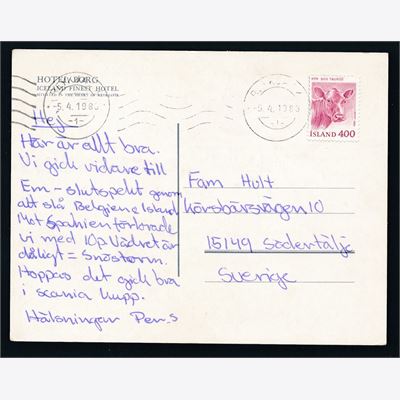 HOTEL BORG
ICELAND FINEST HOTEL
5.4.1983
-1-
-5.4.1983
-1-
KÝR BOS TAURUS
ÍSLAND 400
Hej
Här är allt bra.
Vi gick vidare till
Em-slutspelet genom
att slå Belgien & Island
Mot Spanien förlorade
vi med 10p. Vädret är
dåligt = Snöstorm.
Hoppas det gick bra
i scania kupp.
Hälsningar Per.S
Fam Hult
Körsbärsvägen 10
15149 Södertälje
Sverige